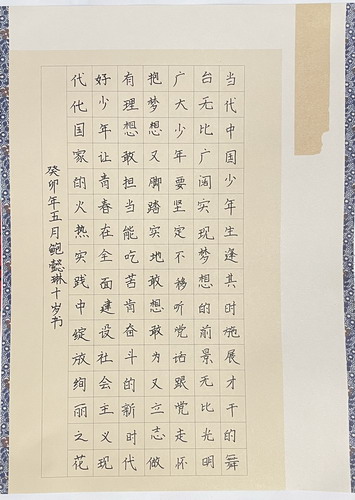 当代中国少年生逢其时施展才干的舞
台无比广阔实现梦想的前景无比光明
广大少年要坚定不移听党话跟党走怀
抱梦想又脚踏实地敢想敢为又立志做
有理想敢担当能吃苦肯奋斗的新时代
好少年让青春在全面建设社会主义现
代化国家的火热实践中绽放绚丽之花
癸卯年五月鲍懿琳十岁书